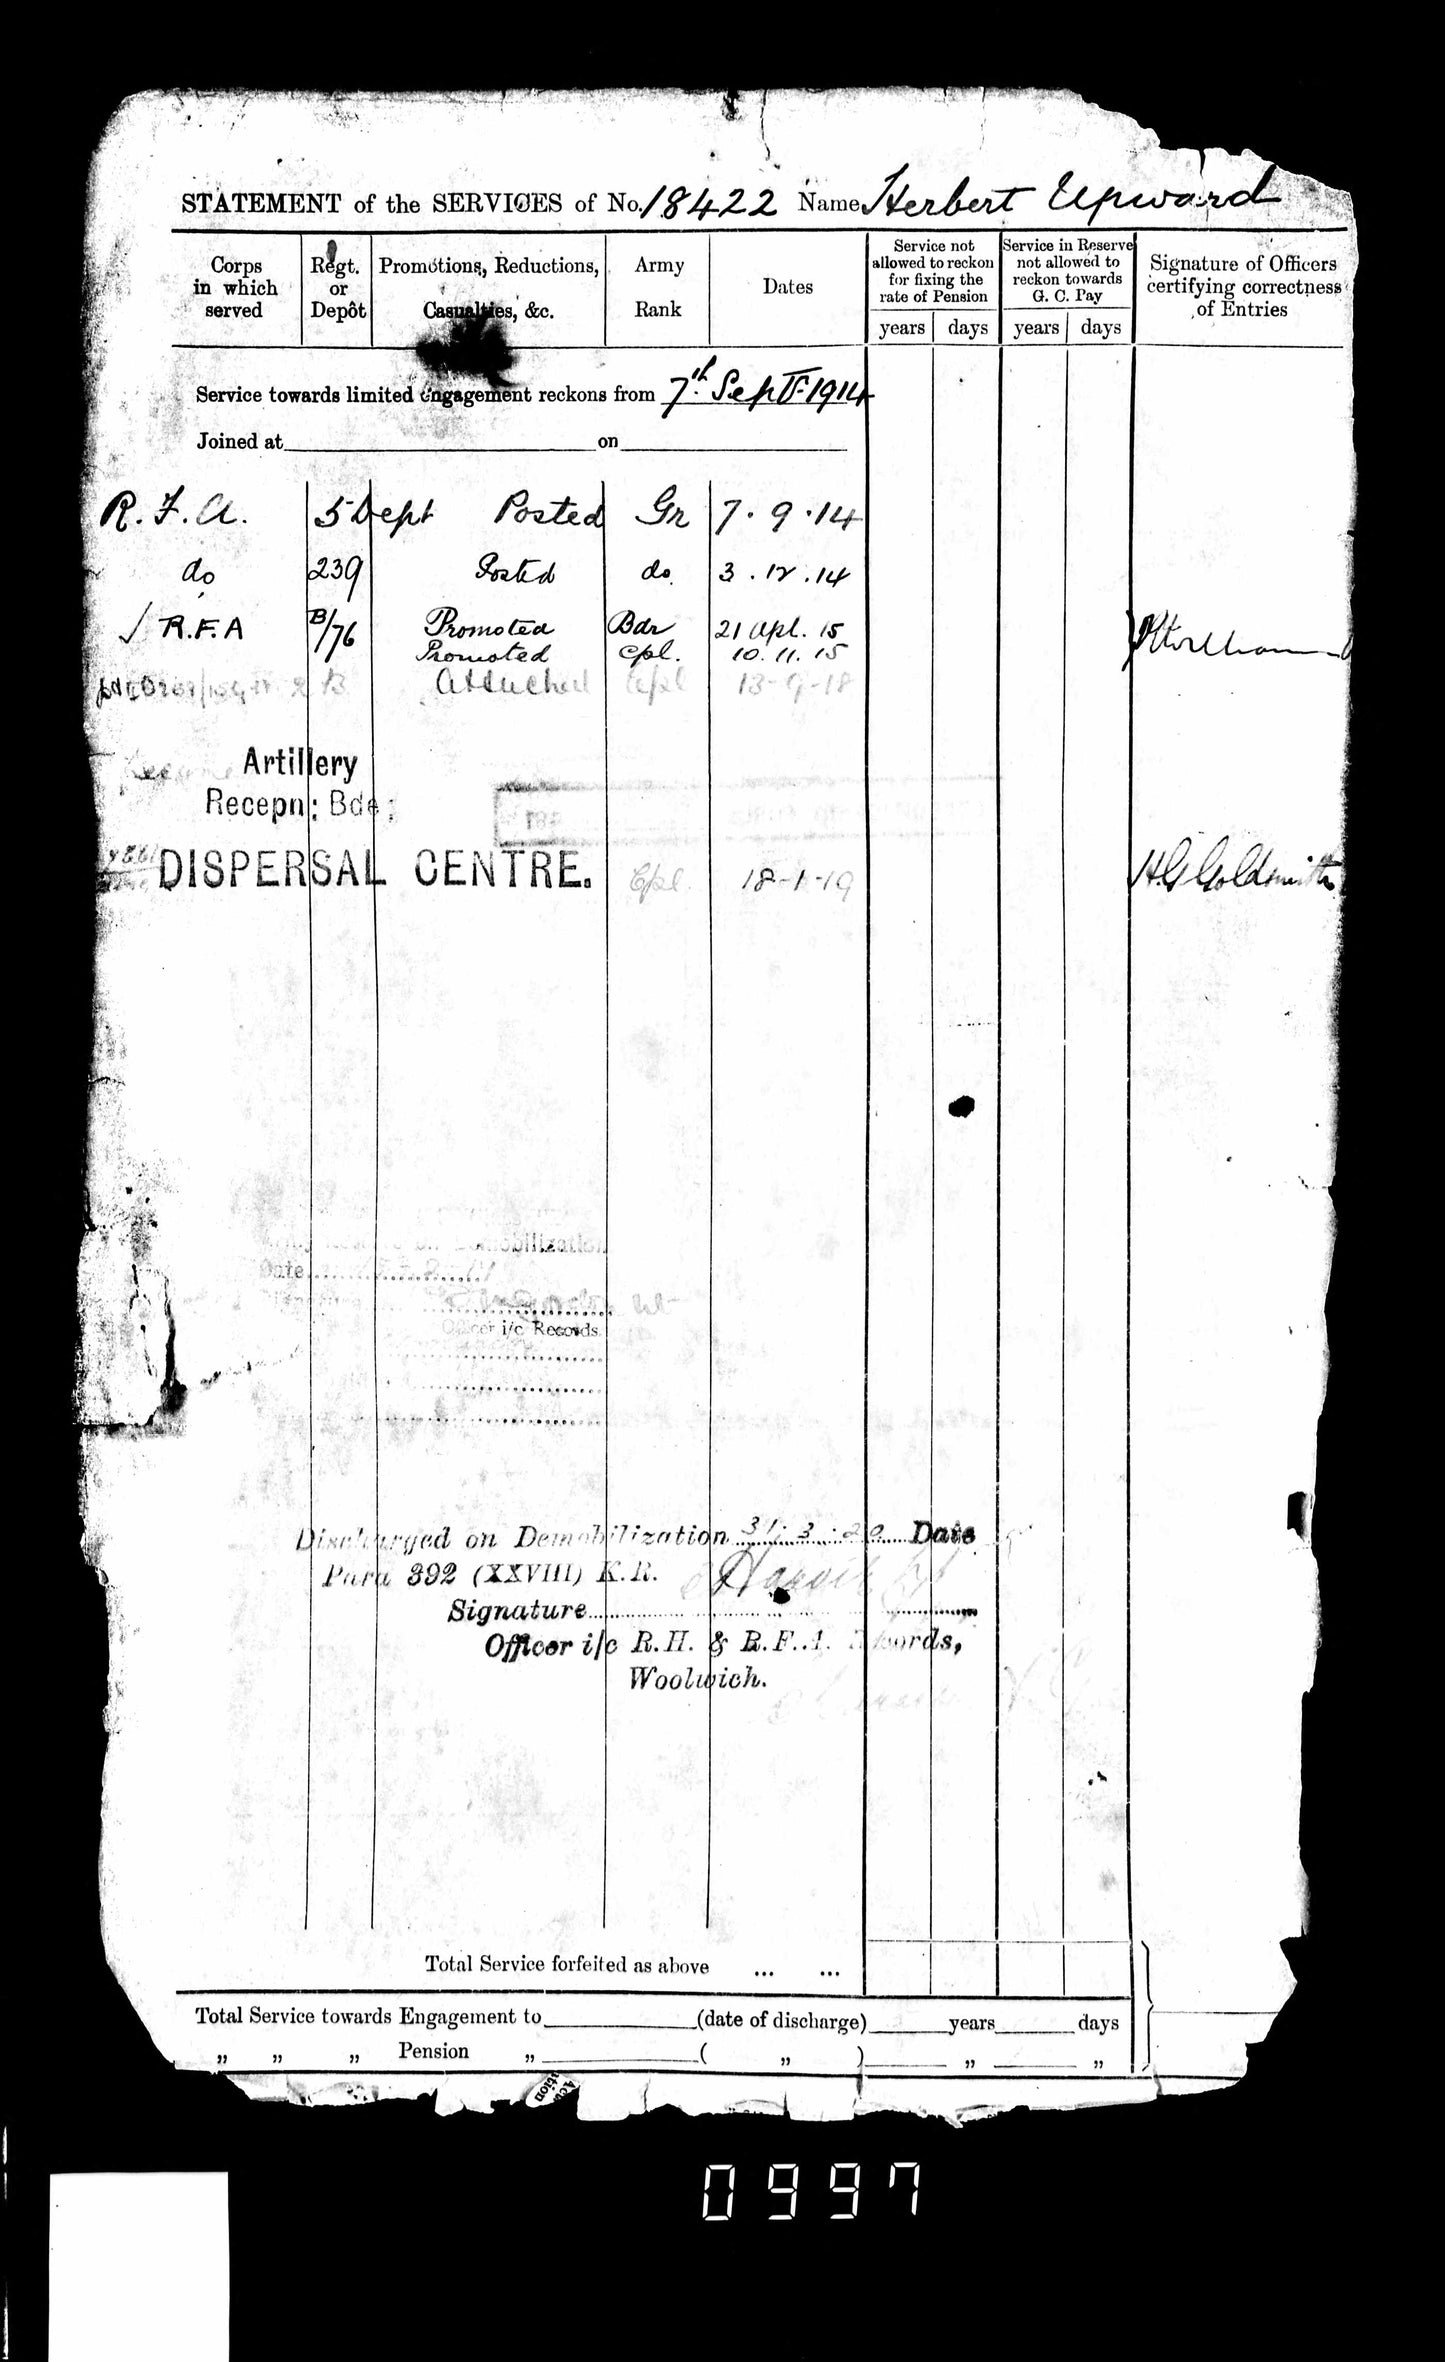 STATEMENT of the SERVICES of No. 18422 Name Herbert Upward
Corps in which served
Regt. or Depôt
Promotions, Reductions, Casualties, &c.
Army Rank
Dates
Service not allowed to reckon for fixing the rate of Pension
years days
Service in Reserve not allowed to reckon towards G. C. Pay
years days
Signature of Officers certifying correctness of Entries
Service towards limited engagement reckons from 7th Sept 1914
Joined at on
R. F. A. 5 Dept Posted Gr 7. 9. 14
do 239 Posted do. 3. 12. 14
R.F.A B/76 Promoted Bdr 21 Apl. 15
Promoted Cpl. 10. 11. 15
B Attached Cpl 13-9-18
Artillery
Recepn: Bde;
DISPERSAL CENTRE. Cpl. 18-1-19 H.G. Goldsmith
Date
Officer i/c Records.
Discharged on Demobilization 31. 3. 20 Date
Para 392 (XXVIII) K.R.
Signature
Officer i/c R.H. & R.F.A. Records,
Woolwich.
Total Service forfeited as above ... ...
Total Service towards Engagement to (date of discharge) years days
„ „ „ Pension „ ( „ ) „ „
0997